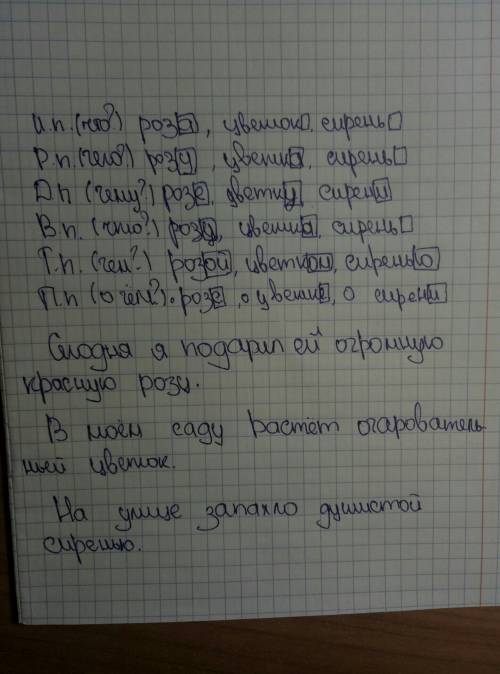 И.п. (что?) роза, цветок, сирень
Р.п. (чего?) розу, цветка, сирень
Д.п (чему?) розе, цветку сирени
В п. (что?) розу, цветка, сирень
Т.п. (чем?) розой, цветком, сиренью
П.п (о чём?) о розе, о цветке, о сирени
Сегодня я подарил ей огромную
красную розу.
В моём саду растёт очарователь-
ный цветок.
На улице запахло душистой
сиренью.